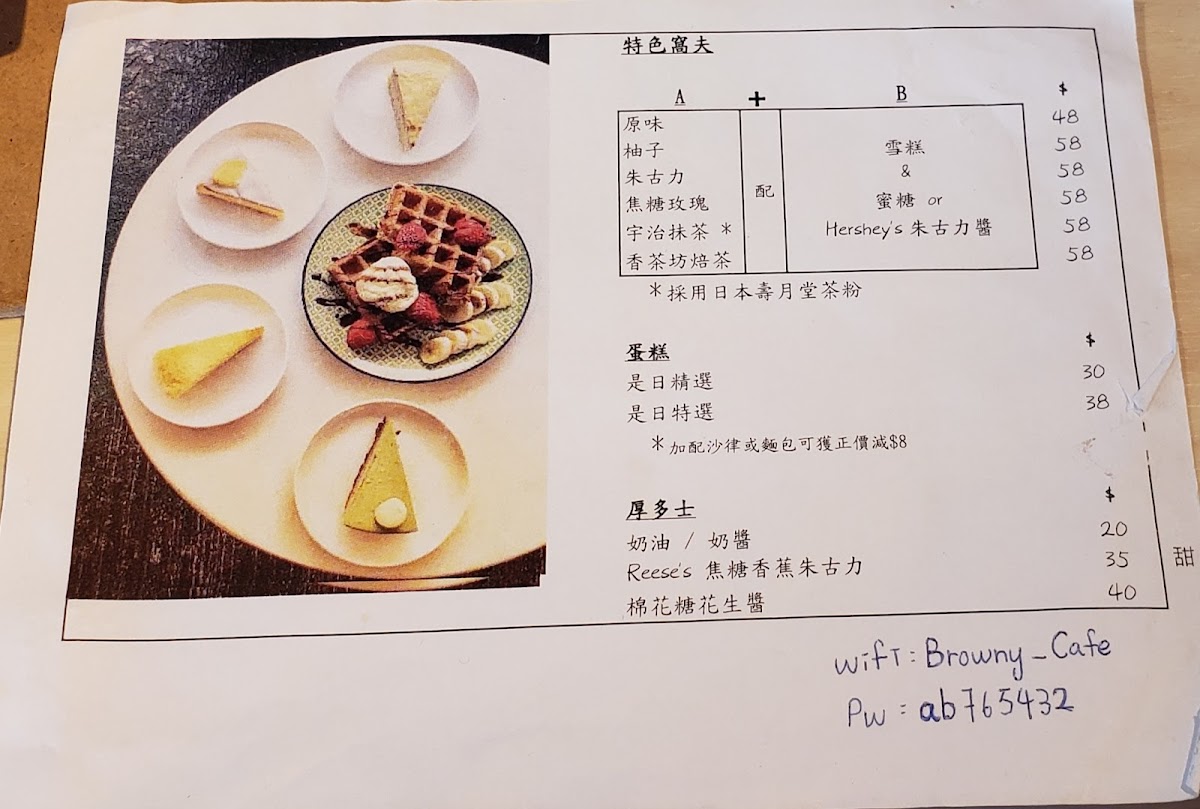 特色窩夫
A + B $
原味 48
柚子 雪糕 58
朱古力 & 58
配
焦糖玫瑰 蜜糖 or 58
宇治抹茶 * Hershey's 朱古力醬 58
香茶坊焙茶 58
*採用日本壽月堂茶粉
蛋糕 $
是日精選 30
是日特選 38
*加配沙律或麵包可獲正價減$8
厚多士 $
奶油 / 奶醬 20
Reese's 焦糖香蕉朱古力 35
棉花糖花生醬 40
甜
wifi: Browny_Cafe
Pw: ab765432